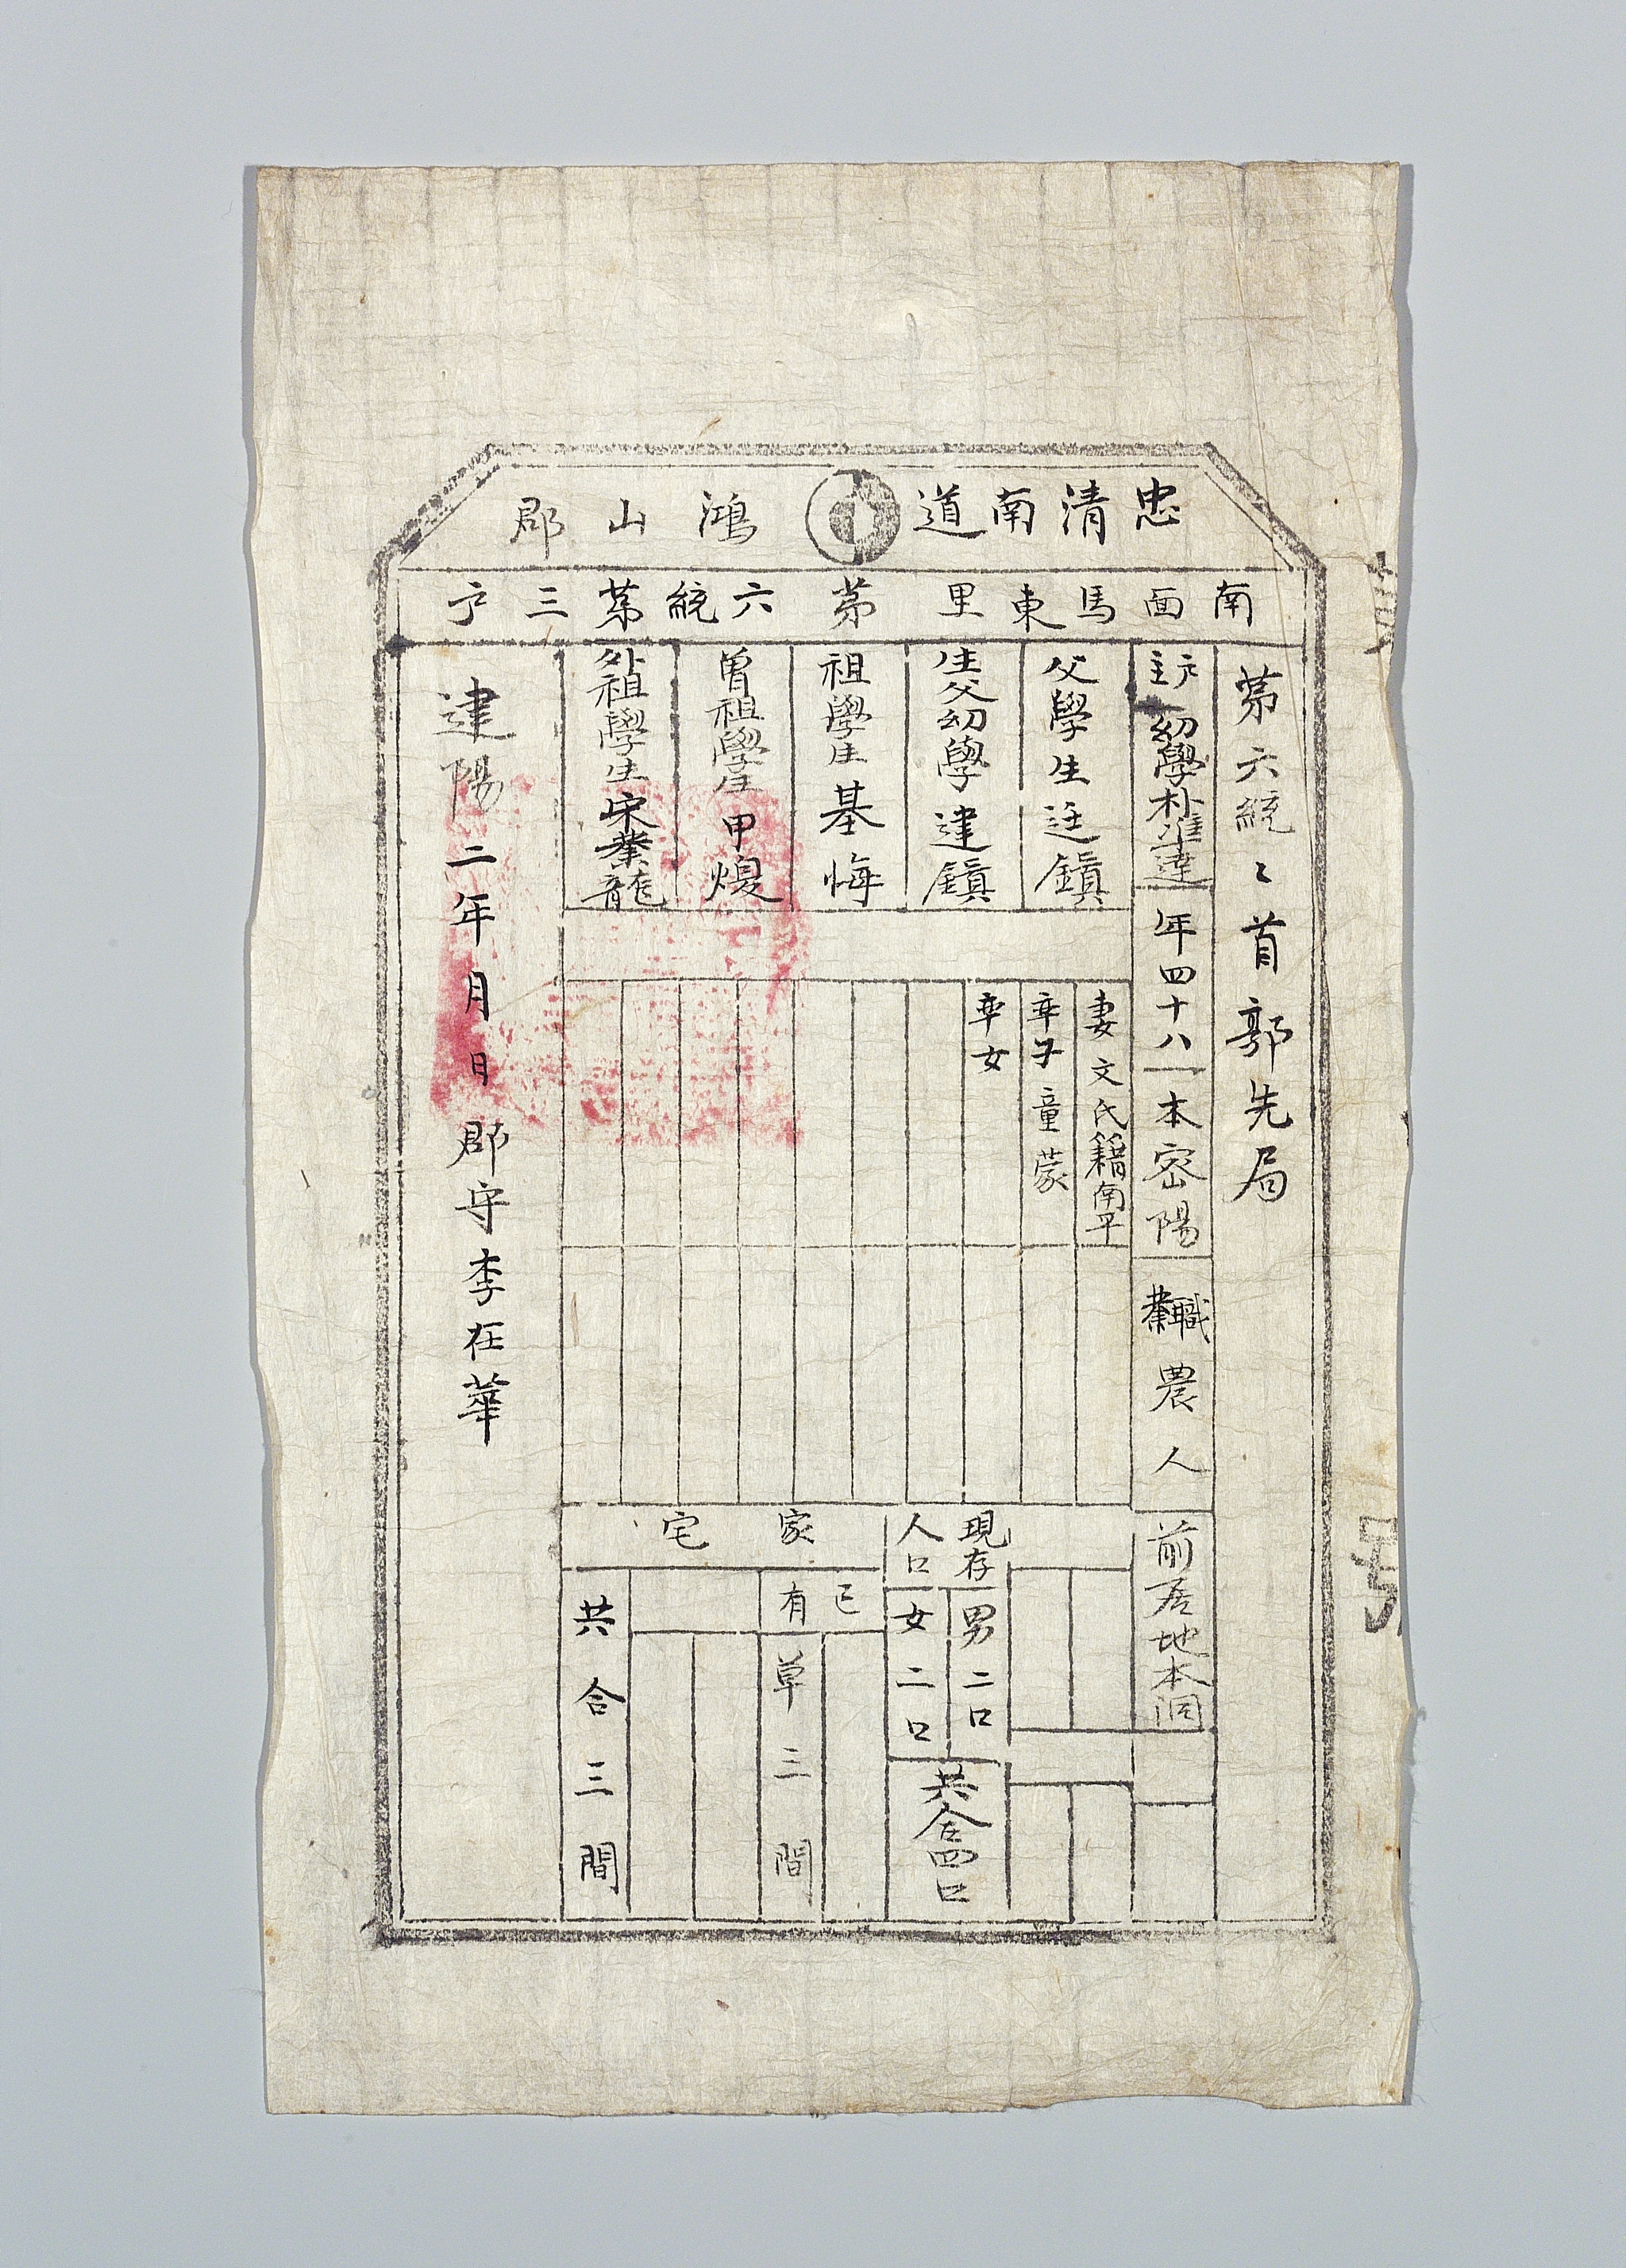 忠清南道 鴻山郡
南面馬東里第六統第三戶
第六統〻首郭先局
主戶幼學朴準達
年四十八
本密陽
職業農人
前居地本洞
父學生廷鎮
生父幼學建鎮
祖學生基悔
曾祖學生甲煥
外祖學生宋龍
妻文氏籍南平
率子童蒙
率女
現存人口
男二口
女二口
共合四口
家宅
己有
草三間
共合三間
建陽二年月日郡守李在華
號